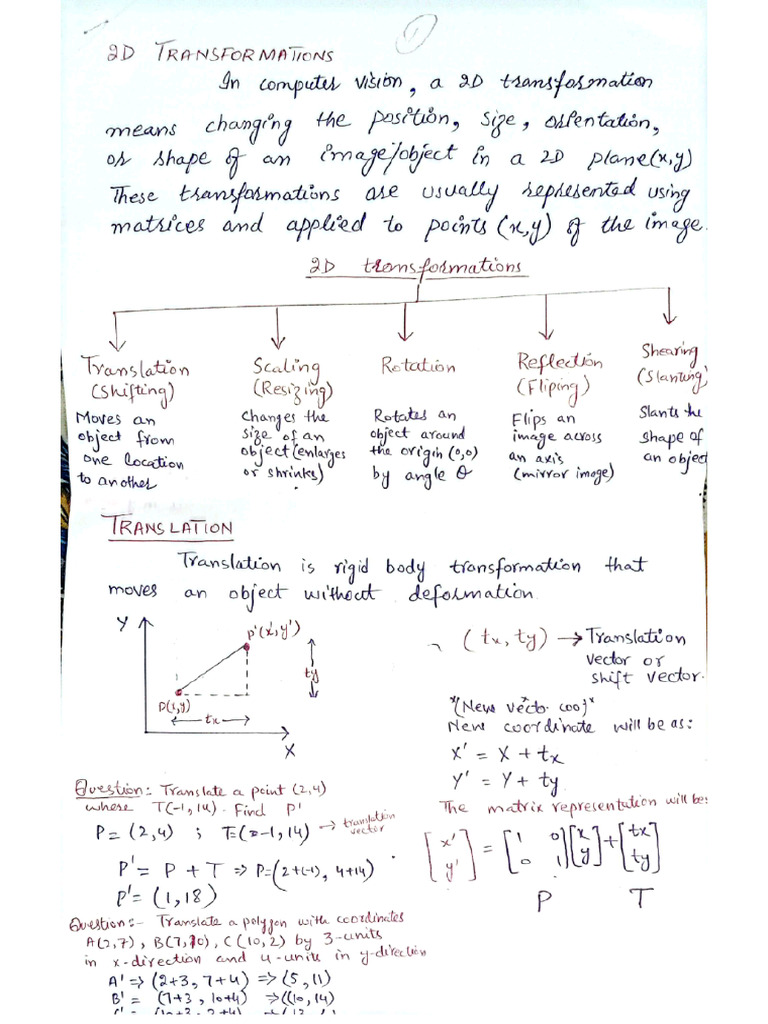 1
2D TRANSFORMATIONS
In computer vision, a 2D transformation
means changing the position, size, orientation,
or shape of an image/object in a 2D plane(x,y)
These transformations are usually represented using
matrices and applied to points (x,y) of the image.
2D transformations
Translation
(Shifting)
Moves an
object from
one location
to another
Scaling
(Resizing)
Changes the
size of an
object (enlarges
or shrinks)
Rotation
Rotates an
object around
the origin (0,0)
by angle θ
Reflection
(Fliping)
Flips an
image across
an axis
(mirror image)
Shearing
(Slanting)
Slants the
shape of
an object
TRANSLATION
Translation is rigid body transformation that
moves an object without deformation
Y
P'(x',y')
ty
P(x,y)
tx
X
(tx, ty) → Translation
vector or
shift vector.
*(New vecto coo)*
New coordinate will be as:
X' = X + tx
Y' = Y + ty
The matrix representation will be:
[x' y'] = [1 0 0 1][x y]+[tx ty]
P T
Question: Translate a point (2,4)
where T(-1, 14). Find P'
P = (2,4) ; T=(-1, 14) → translation
vector
P' = P + T ⇒ P=(2+(-1), 4+14)
P' = (1, 18)
Question:- Translate a polygon with coordinates
A(2,7), B(7,10), C(10,2) by 3-units
in x-direction and 4-units in y-direction
A' ⇒ (2+3, 7+4) ⇒ (5, 11)
B' = (7+3, 10+4) ⇒ (10, 14)